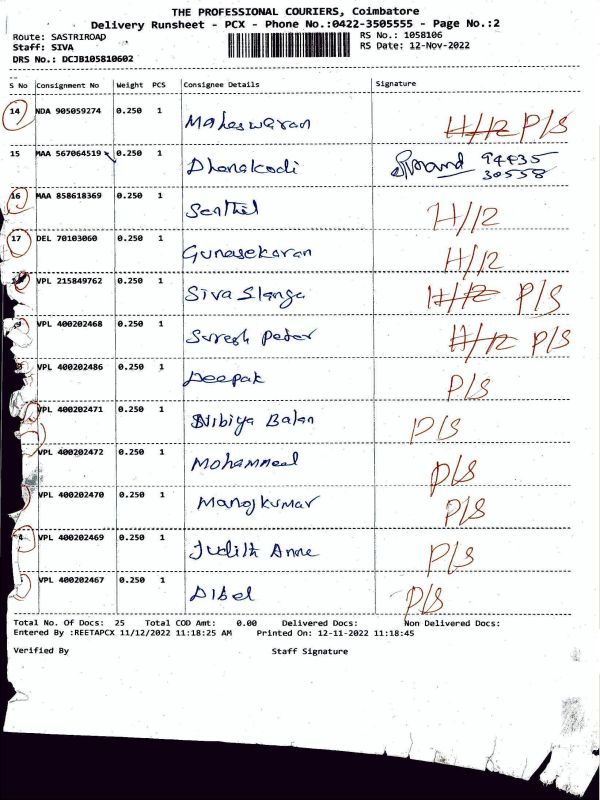 THE PROFESSIONAL COURIERS, Coimbatore
Delivery Runsheet - PCX - Phone No.:0422-3505555 - Page No.:2
Route: SASTRIROAD RS No.: 1058106
Staff: SIVA RS Date: 12-Nov-2022
DRS No.: DCJB105810602
S No Consignment No Weight PCS Consignee Details Signature
14 NDA 905059274 0.250 1 Maheswaran H/12 P/S
15 MAA 567064519 0.250 1 Dhanakodi Anand 94435
30558
16 MAA 858618369 0.250 1 Senthil H/12
17 DEL 70103060 0.250 1 Gunasekaran H/12
VPL 215849762 0.250 1 Siva Slanga H/12 P/S
VPL 400202468 0.250 1 Suresh Peter H/12 P/S
VPL 400202486 0.250 1 Deepak P/S
VPL 400202471 0.250 1 Balan P/S
VPL 400202472 0.250 1 Mohammed P/S
VPL 400202470 0.250 1 Manojkumar P/S
VPL 400202469 0.250 1 Judith Anne P/S
VPL 400202467 0.250 1 Dibel P/S
Total No. Of Docs: 25 Total COD Amt: 0.00 Delivered Docs: Non Delivered Docs:
Entered By :REETAPCX 11/12/2022 11:18:25 AM Printed On: 12-11-2022 11:18:45
Verified By Staff Signature